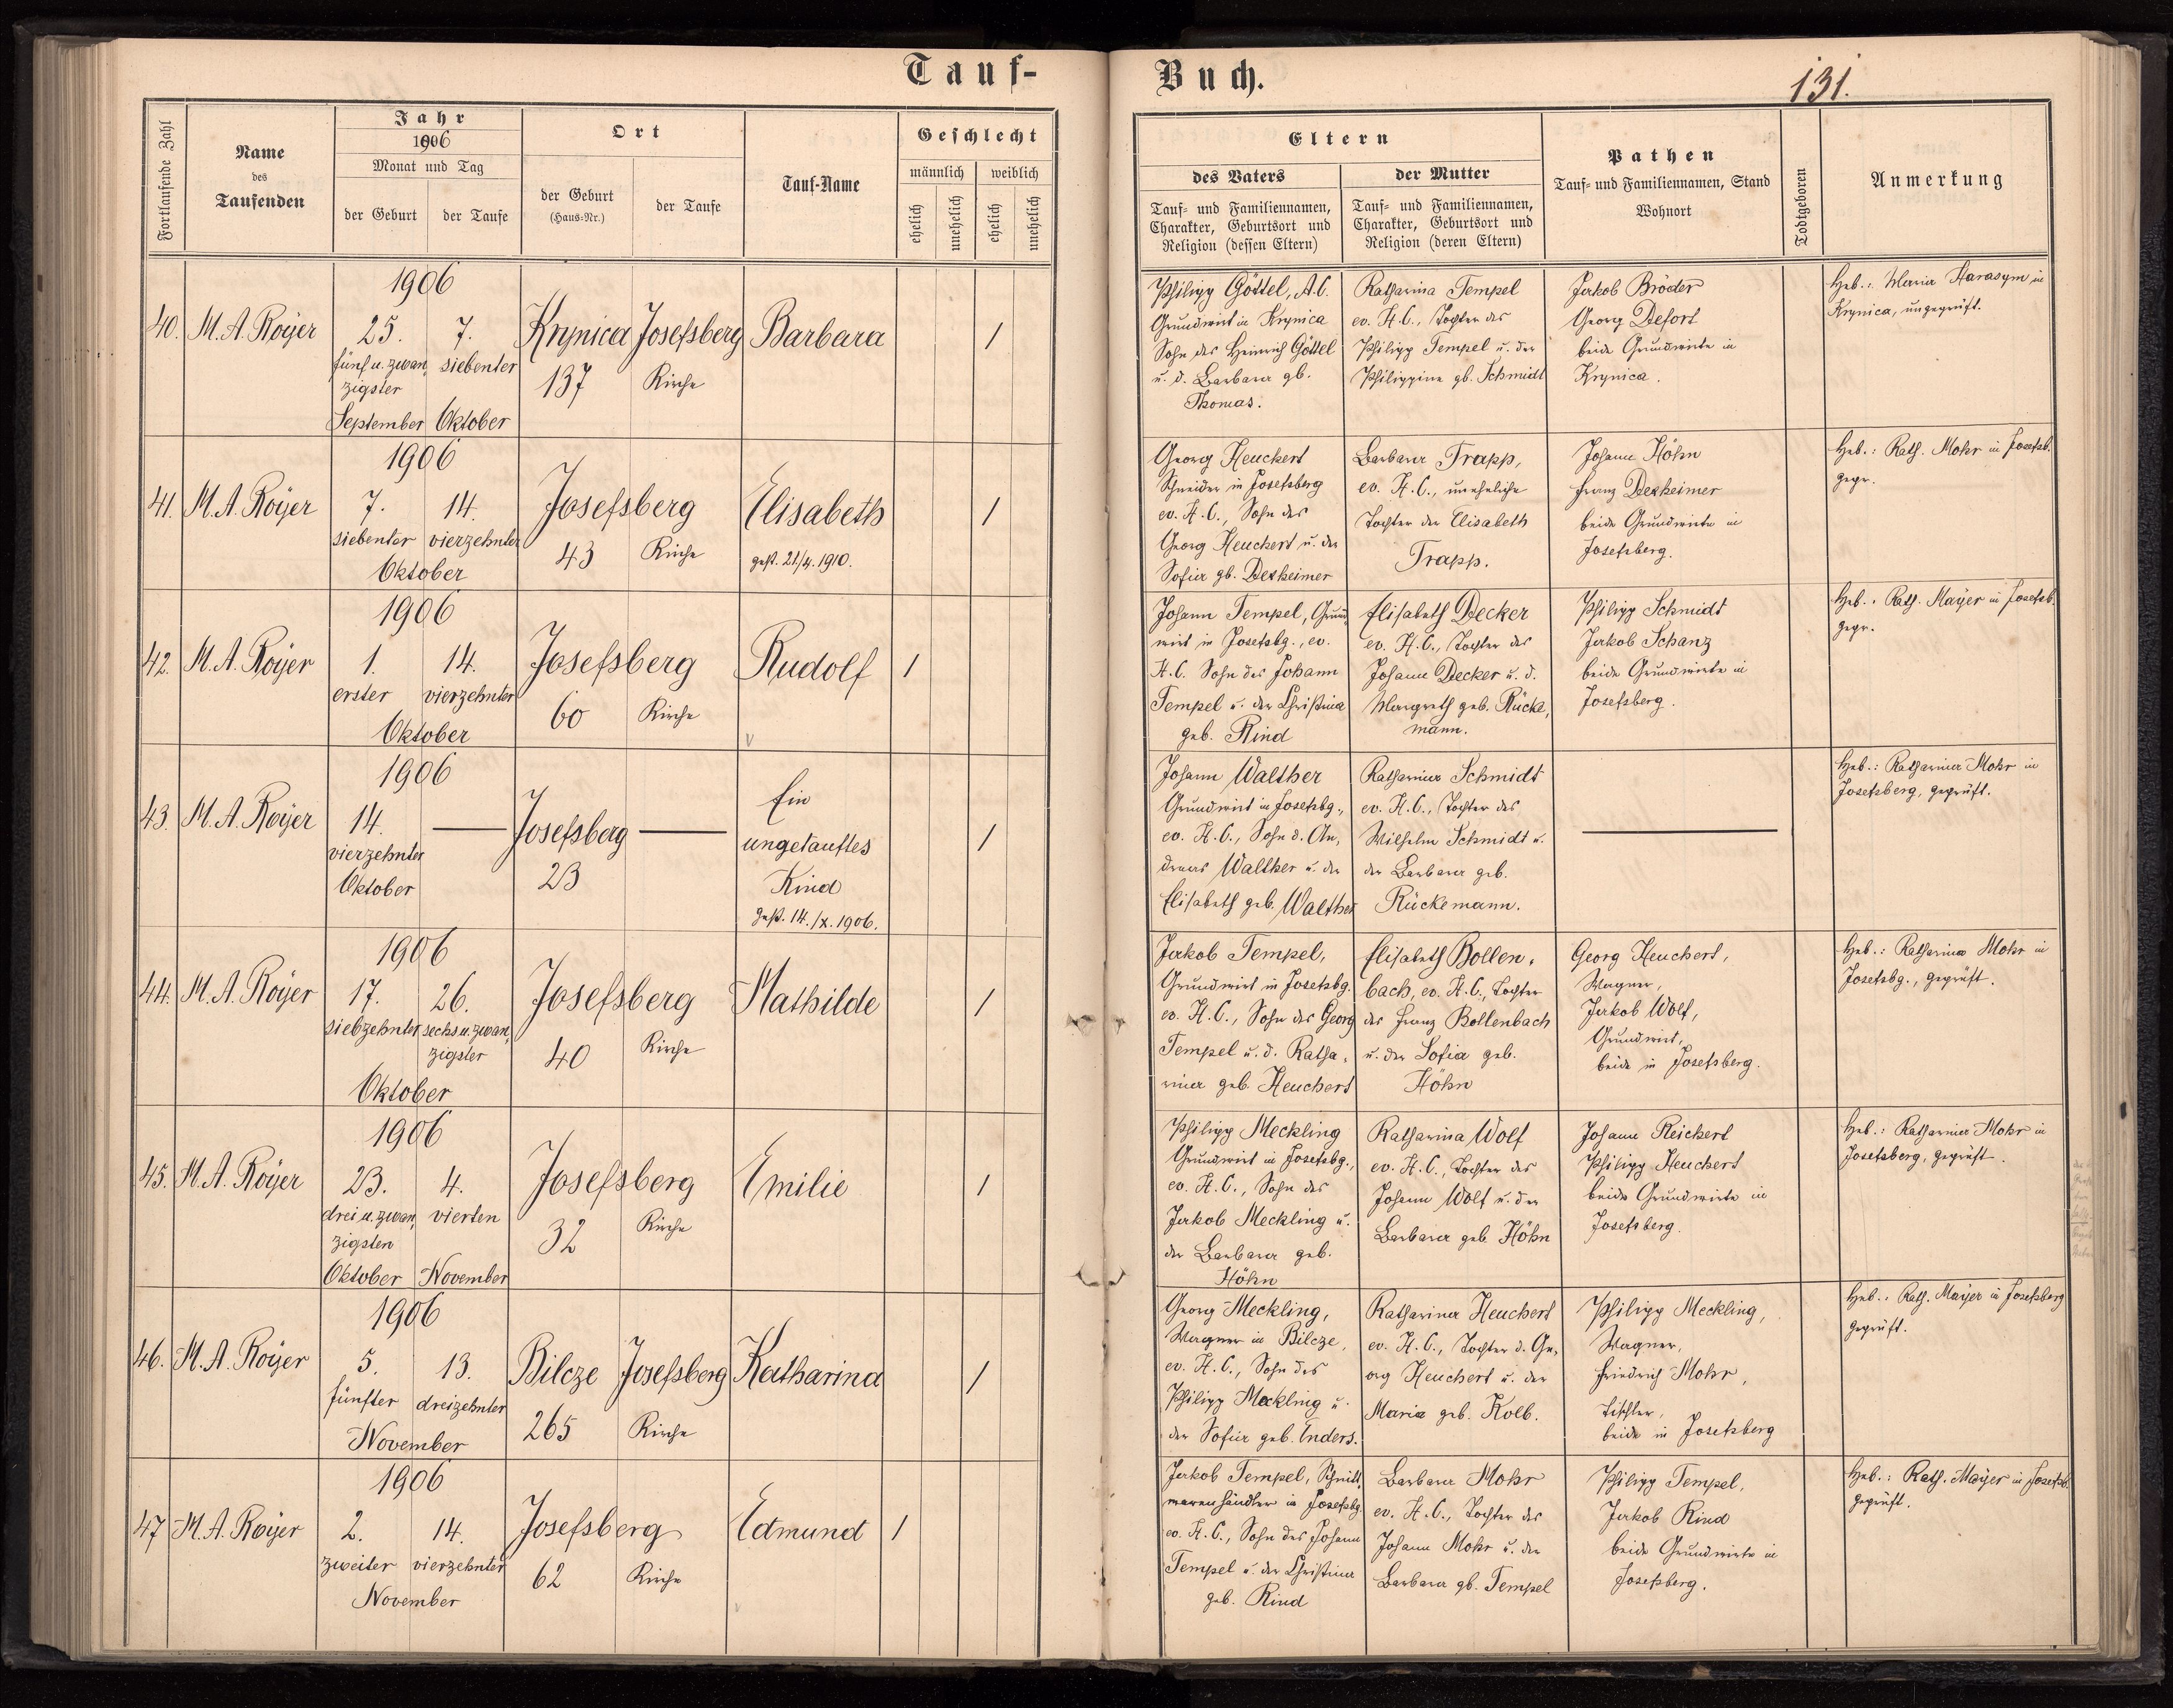 Tauf-Buch.
131.
Fortlaufende Zahl
Name
des
Taufenden
Jahr
1906
Monat und Tag
der Geburt
der Taufe
Ort
der Geburt
(Haus-Nr.)
der Taufe
Tauf-Name
Geschlecht
männlich
weiblich
ehelich
unehelich
ehelich
unehelich
Eltern
des Vaters
Tauf- und Familiennamen,
Charakter, Geburtsort und
Religion (dessen Eltern)
der Mutter
Tauf- und Familiennamen,
Charakter, Geburtsort und
Religion (deren Eltern)
Pathen
Tauf- und Familiennamen, Stand
Wohnort
Todtgeboren
Anmerkung
40. M. A. Royer
1906
25. 7.
fünf u. zwan, siebenter
zigster
September Oktober
Krynica Josefsberg
137 Kirche
Barbara
1
Philipp Göttel, A.C.
Grundwirt in Krynica
Sohn des Heinrich Göttel
u. d. Barbara gb.
Thomas.
Katharina Tempel
ev. H.C., Tochter des
Philipp Tempel u. der
Philippine gb. Schmidt
Jakob Bröder
Georg Defort
beide Grundwirte in
Krynica.
Heb.: Maria Harasym in
Krynica, ungeprüft.
41. M. A. Royer
1906
7. 14.
siebenter vierzehnter
Oktober
Josefsberg
43 Kirche
Elisabeth
gest. 21/4. 1910.
1
Georg Heuchert
Schneider in Josefsberg
ev. H.C., Sohn des
Georg Heuchert u. der
Sofia gb. Dexheimer
Barbara Trapp,
ev. H.C., uneheliche
Tochter der Elisabeth
Trapp.
Johann Höhn
Franz Dexheimer
beide Grundwirte in
Josefsberg.
Heb.: Kath. Mohr in Josefsb.
gepr.
42. M. A. Royer
1906
1. 14.
erster vierzehnter
Oktober
Josefsberg
60 Kirche
Rudolf
1
Johann Tempel, Grund
wirt in Josefsbg., ev.
H.C. Sohn des Johann
Tempel u. der Christina
geb. Rind
Elisabeth Decker
ev. H.C., Tochter des
Johann Decker u. d.
Margreth geb. Rücke,
mann.
Philipp Schmidt
Jakob Schanz
beide Grundwirte in
Josefsberg.
Heb.: Kath. Mayer in Josefsb.
gepr.
43. M. A. Royer
1906
14.
vierzehnter
Oktober
Josefsberg
23
Ein
ungetauftes
Kind
gest. 14./X. 1906.
1
Johann Walther
Grundwirt in Josefsbg.,
ev. H.C., Sohn d. An,
dreas Walther u. der
Elisabeth geb. Walther
Katharina Schmidt
ev. H.C., Tochter des
Wilhelm Schmidt u.
der Barbara geb.
Rückemann.
Heb.: Katharina Mohr in
Josefsberg, geprüft.
44. M. A. Royer
1906
17. 26.
siebzehnter sechs u. zwan,
zigster
Oktober
Josefsberg
40 Kirche
Mathilde
1
Jakob Tempel,
Grundwirt in Josefsbg.
ev. H.C., Sohn des Georg
Tempel u. d. Katha,
rina geb. Heuchert
Elisabeth Bollen,
bach, ev. H.C., Tochter
des Franz Bollenbach
u. der Sofia geb.
Höhn
Georg Heuchert,
Wagner,
Jakob Wolf,
Grundwirt,
beide in Josefsberg.
Heb.: Katharina Mohr in
Josefsbg., geprüft.
45. M. A. Royer
1906
23. 4.
drei u. zwan, vierten
zigsten
Oktober November
Josefsberg
32 Kirche
Emilie
1
Philipp Meckling
Grundwirt in Josefsbg.,
ev. H.C., Sohn des
Jakob Meckling u.
der Barbara geb.
Höhn
Katharina Wolf
ev. H.C., Tochter des
Johann Wolf u. der
Barbara geb. Höhn
Johann Reichert
Philipp Heuchert
beide Grundwirte in
Josefsberg.
Heb.: Katharina Mohr in
Josefsberg, geprüft.
46. M. A. Royer
1906
5. 13.
fünfter dreizehnter
November
Bilcze Josefsberg
265 Kirche
Katharina
1
Georg Meckling,
Wagner in Bilcze,
ev. H.C., Sohn des
Philipp Meckling u.
der Sofia geb. Enders.
Katharina Heuchert
ev. H.C., Tochter d. Ge,
org Heuchert u. der
Maria geb. Kolb.
Philipp Meckling,
Wagner,
Friedrich Mohr,
Tischler,
beide in Josefsberg
Heb.: Kath. Mayer in Josefsberg
geprüft.
47 M. A. Royer
1906
2. 14.
zweiter vierzehnter
November
Josefsberg
62 Kirche
Edmund
1
Jakob Tempel, Schnitt,
warenhändler in Josefsbg.
ev. H.C., Sohn des Johann
Tempel u. der Christina
geb. Rind
Barbara Mohr
ev. H.C., Tochter des
Johann Mohr u. der
Barbara gb. Tempel
Philipp Tempel,
Jakob Rind
beide Grundwirte in
Josefsberg.
Heb.: Kath. Mayer in Josefsb.
geprüft.